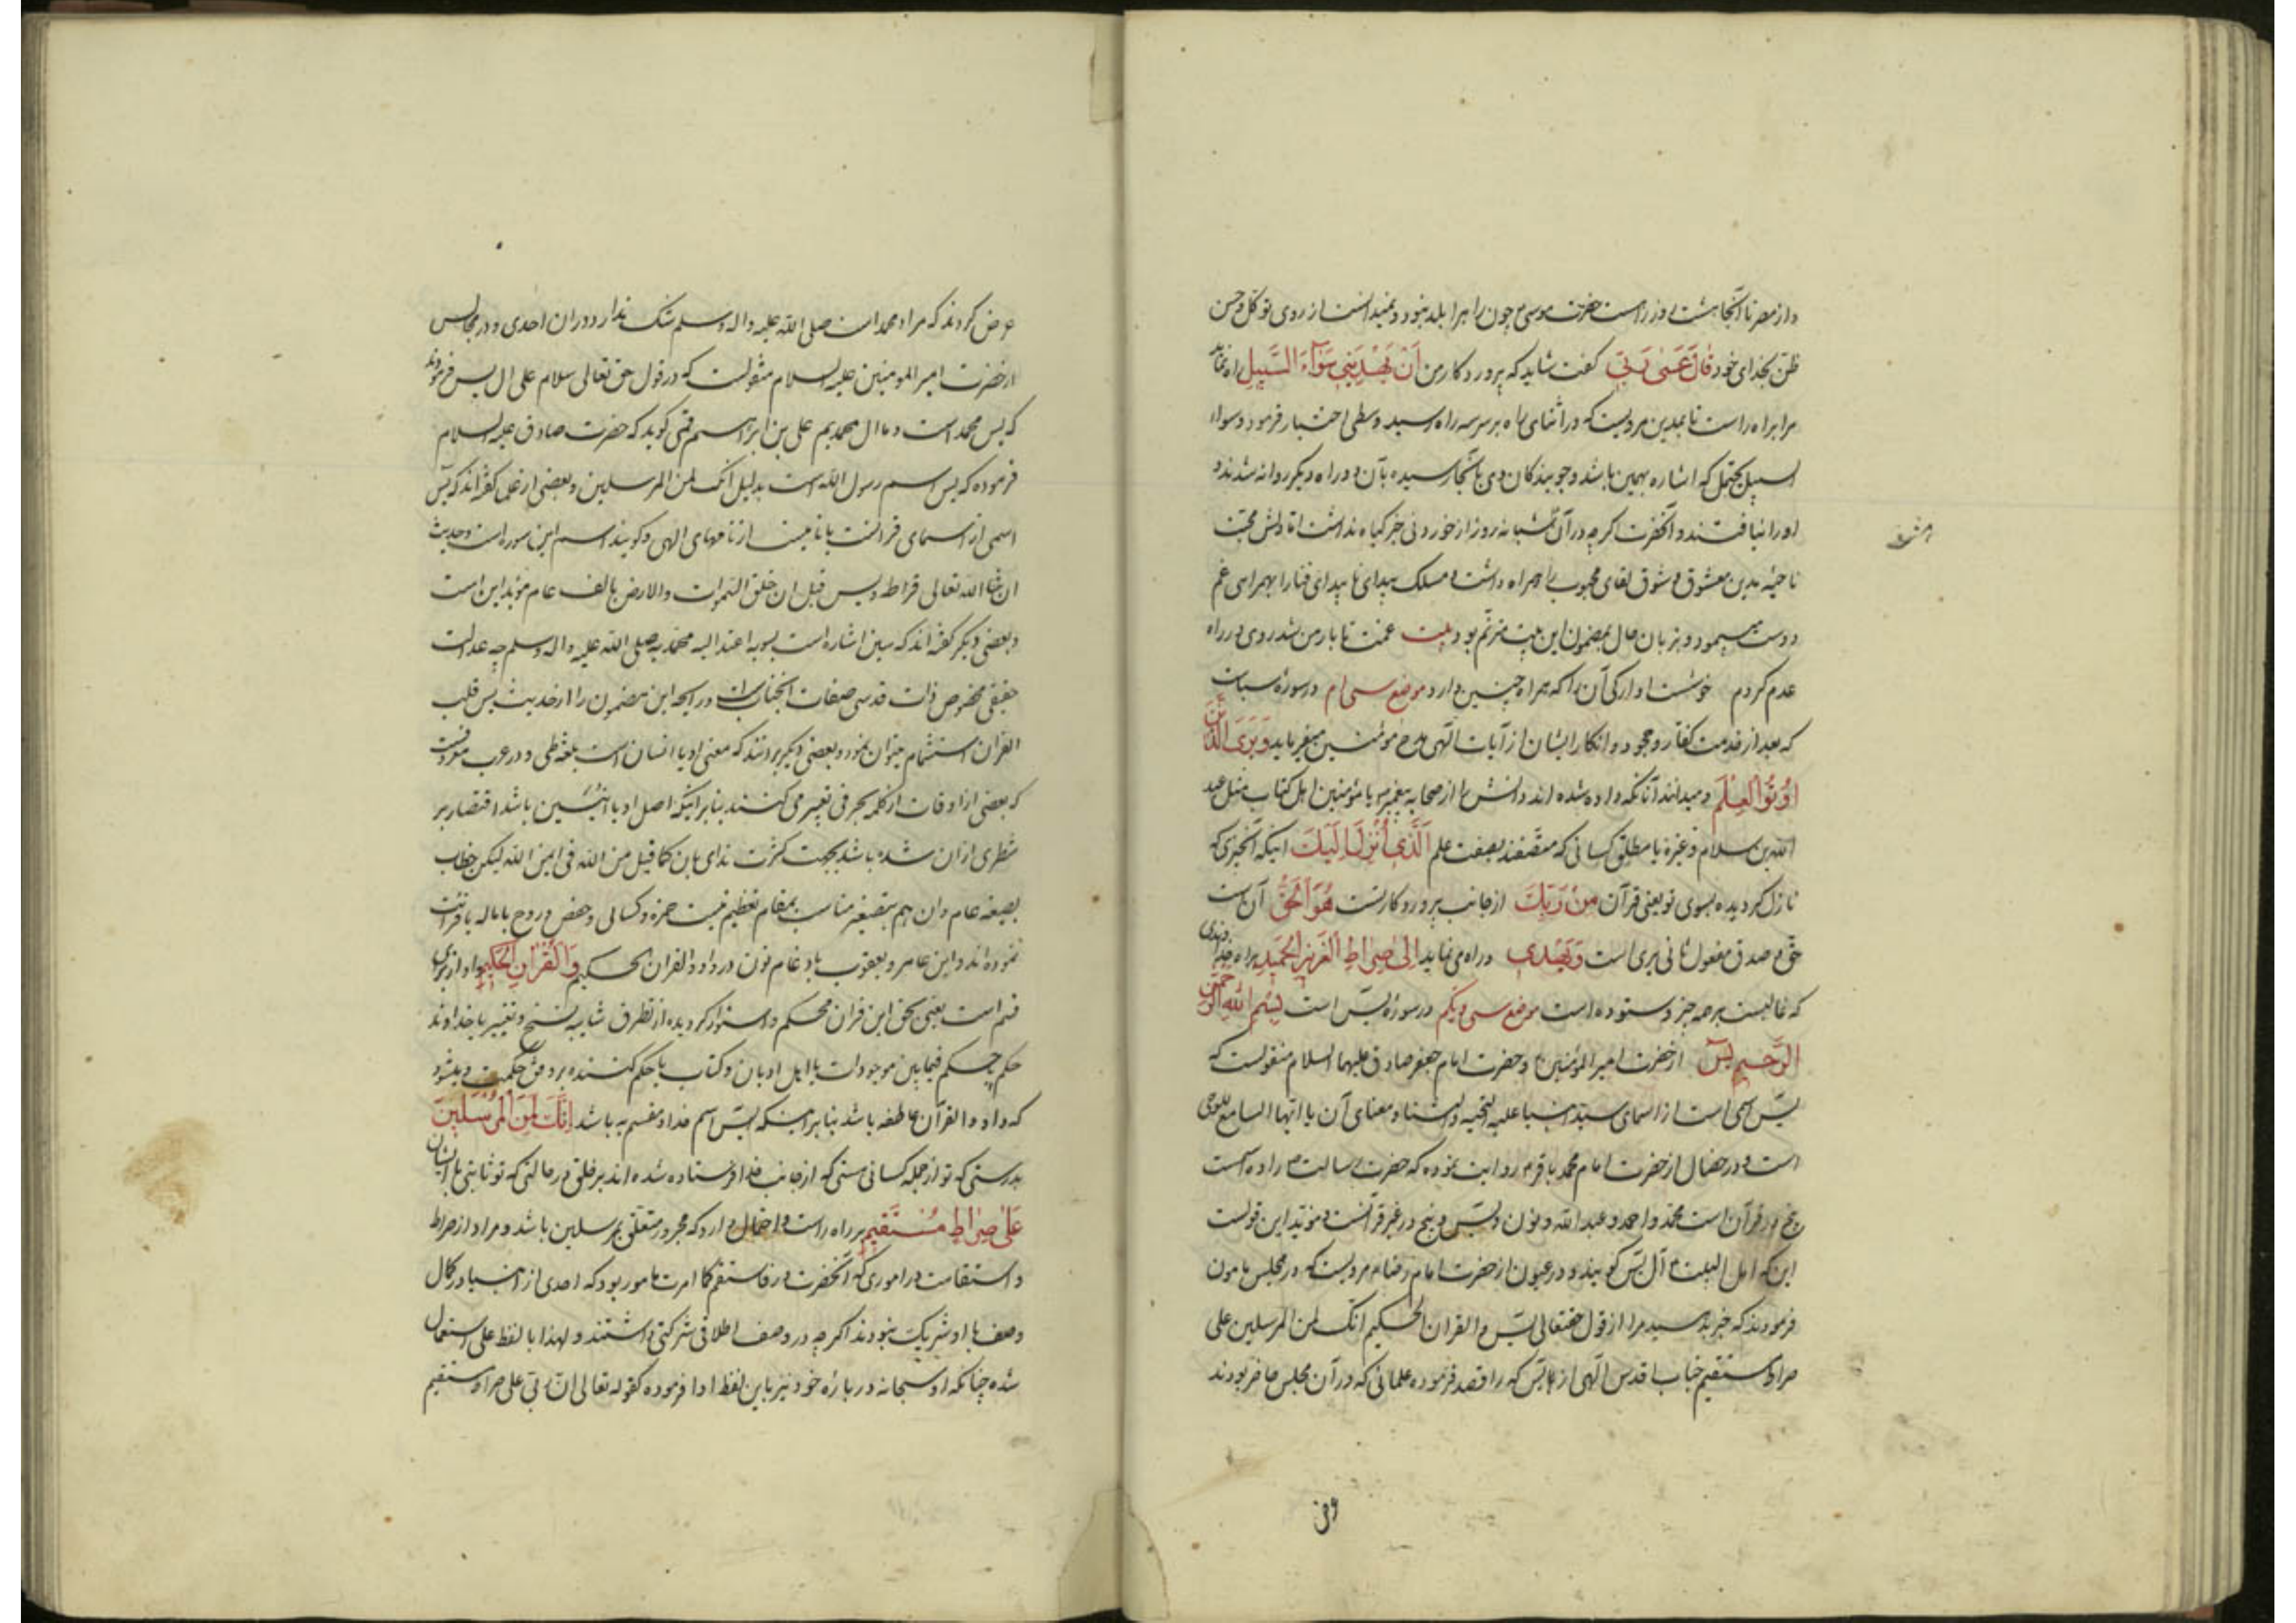 واز مصر تا آنجا هشت روز راست حضرت موسی۴ چون راه را بلد نبود و نمیدانست از روی توکل و حسن
ظن بخدای خود قالَ عَسیٰ رَبّی گفت شاید که پروردکار من اَنْ یَهْدِیَنی سَوٰآءَ السَّبیلِ راه نماید
مرا براه راست تا بمدین مرویست که در اثنای راه بر سر سه راه رسید وسطی اختیار فرمود و سواء
السبیل یحتمل که اشاره بهمین باشد و جویندکان وی بآنجا رسیده بآن دو راه دیگر روانه شدند و
او را نیافتند و آنحضرت کرچه در آن هشت شبانه روز از خوردنی جز کیاه نداشت اما دلش محبت
ناحیه مدین معشوق و شوق لقای محبوب را همراه داشت و مسلک بیدای ناپیدای فنا را بهمراهی غم
دوست می پیمود و بزبان حال بمضمون این بیت مترنم بود بیت غمت تا یار من شد روی در راه
عدم کردم خوشست اوارکی آن را که همراه چنین دارد موضع سی ام در سورهٔ سبا
که بعد از مذمت کفار و جحود و انکار ایشان از آیات الهی مدح مومنین میفرماید وَیَرَی الَّذینَ
اوُتُوا الْعِلْمَ و میدانند آنانکه داده شده اند دانش را از صحابه پیغمبر یا مؤمنین اهل کتاب مثل عبد
الله بن سلام و غیره یا مطلق کسانی که متصفند بصفت علم اَلَّذی اُنْزِلَ اِلَیْکَ اینکه آنچیزی که
نازل کردیده بسوی تو یعنی قرآن مِنْ رَبِّکَ از جانب پروردکار تست هُوَ الْحَقُّ آن است
حق و صدق مفعول ثانی یری است وَیَهْدی و راه می نماید اِلیٰ صِراطِ الْعَزیزِ الْحَمیدِ براه خداوندی
که غالبست بر همه چیز و ستوده است موضع سی و یکم در سورهٔ یس است بِسْمِ اللهِ الرَّحْمٰنِ
الرَّحیمِ یٰس از حضرت امیر المؤمنین و حضرت امام جعفر صادق علیهما السلام منقولست که
یس اسمی است از اسمای سید انبیا علیه التحیه و الثناء و معنای آن یا ایها السامع للوحی
است و در خصال از حضرت امام محمد باقر۴ روایت نموده که حضرت رسالت را ده اسمست
پنج در قرآن است محمد و احمد و عبد الله و نون و یس و پنج در غیر قرآنست و مؤید این قولست
این که اهل البیت را آل یس کویند و در عیون از حضرت امام رضا۴ مرویست که در مجلس مامون
فرمودند که خبر بدهید مرا از قول حقتعالی یس و القران الحکیم انک لمن المرسلین علی
صراط مستقیم جناب اقدس الهی از یس که را قصد فرموده علمائی که در آن مجلس حاضر بودند
عرض کردند که مراد محمد است صلی الله علیه و اله و سلم شک ندارد در ان احدی و در مجالس
از حضرت امیر المومنین علیه السلام منقولست که در قول حق تعالی سلام علی ال یس فرمودند
که یس محمد است و ما ال محمدیم علی بن ابراهیم قمی کوید که حضرت صادق علیه السلام
فرموده که یس اسم رسول الله است بدلیل انک لمن المرسلین و بعضی از علما گفته اند که یس
اسمی از اسمای قرانست یا نامیست از نامهای الهی و کویند اسم این سوره است و حدیث
ان الله تعالی قرا طه و یس قبل ان خلق السموات والارض بالف عام مؤید این است
و بعضی دیکر گفته اند که سین اشاره است بسویه اعتدالیه محمدیه صلی الله علیه و اله و سلم چه عدالت
حقیقی مخصوص ذات قدسی صفات آنجنابست و رایحه این مضمون را از حدیث یس قلب
القران استشمام میتوان نمود و بعضی دیکر برانند که معنی او یا انسان است بلغت طی و در عرب معروفست
که بعضی از اوقات از کلمه بحرفی تعبیر می کنند بنابر اینکه اصل او یا انیسین باشد اقتصار بر
شطری از ان شده باشد بجهت کثرت ندای بان کما قیل من الله فی ایمن الله لیکن خطاب
بصیغه عام وان هم بتصغیر مناسب بمقام تعظیم نیست حمزه و کسائی و حفص و روح باماله یا قرائت
نموده اند و ابن عامر و یعقوب بادغام نون در واو والقران الحکیم وَالْقُرْانِ الْحَکیمِ واو از برای
قسم است یعنی بحق این قران محکم و استوار کردیده از تطرق شایبه نسخ و تغییر یا خداوند
حکم فیمابین موجودات یا اهل ادیان و کتاب یا حکم کننده بر وفق حکمت و میشود
که واو و القرآن عاطفه باشد بنابر اینکه یس اسم خدا و مقسم به باشد اِنَّکَ لَمِنَ الْمُرْسَلینَ
بدرستی که تو از جمله کسانی هستی که از جانب خدا فرستاده شده اند بر خلق در حالتی که تو ثابتی یا ایشان
عَلیٰ صِراطٍ مُسْتَقیمٍ بر راه راست و احتمال دارد که مجرور متعلق بمرسلین باشد و مراد از صراط
و استقامت در اموری که آنحضرت در فاستقم کما امرت مامور بود که احدی از انبیا در کمال
وصف با او شریک نبودند اکرچه در وصف اطلاقی شرکتی داشتند و لهذا با لفظ علی استعمال
شده چنانکه او سبحانه در بارهٔ خود نیز باین لفظ ادا فرموده کقوله تعالی ان ربی علی صراط مستقیم